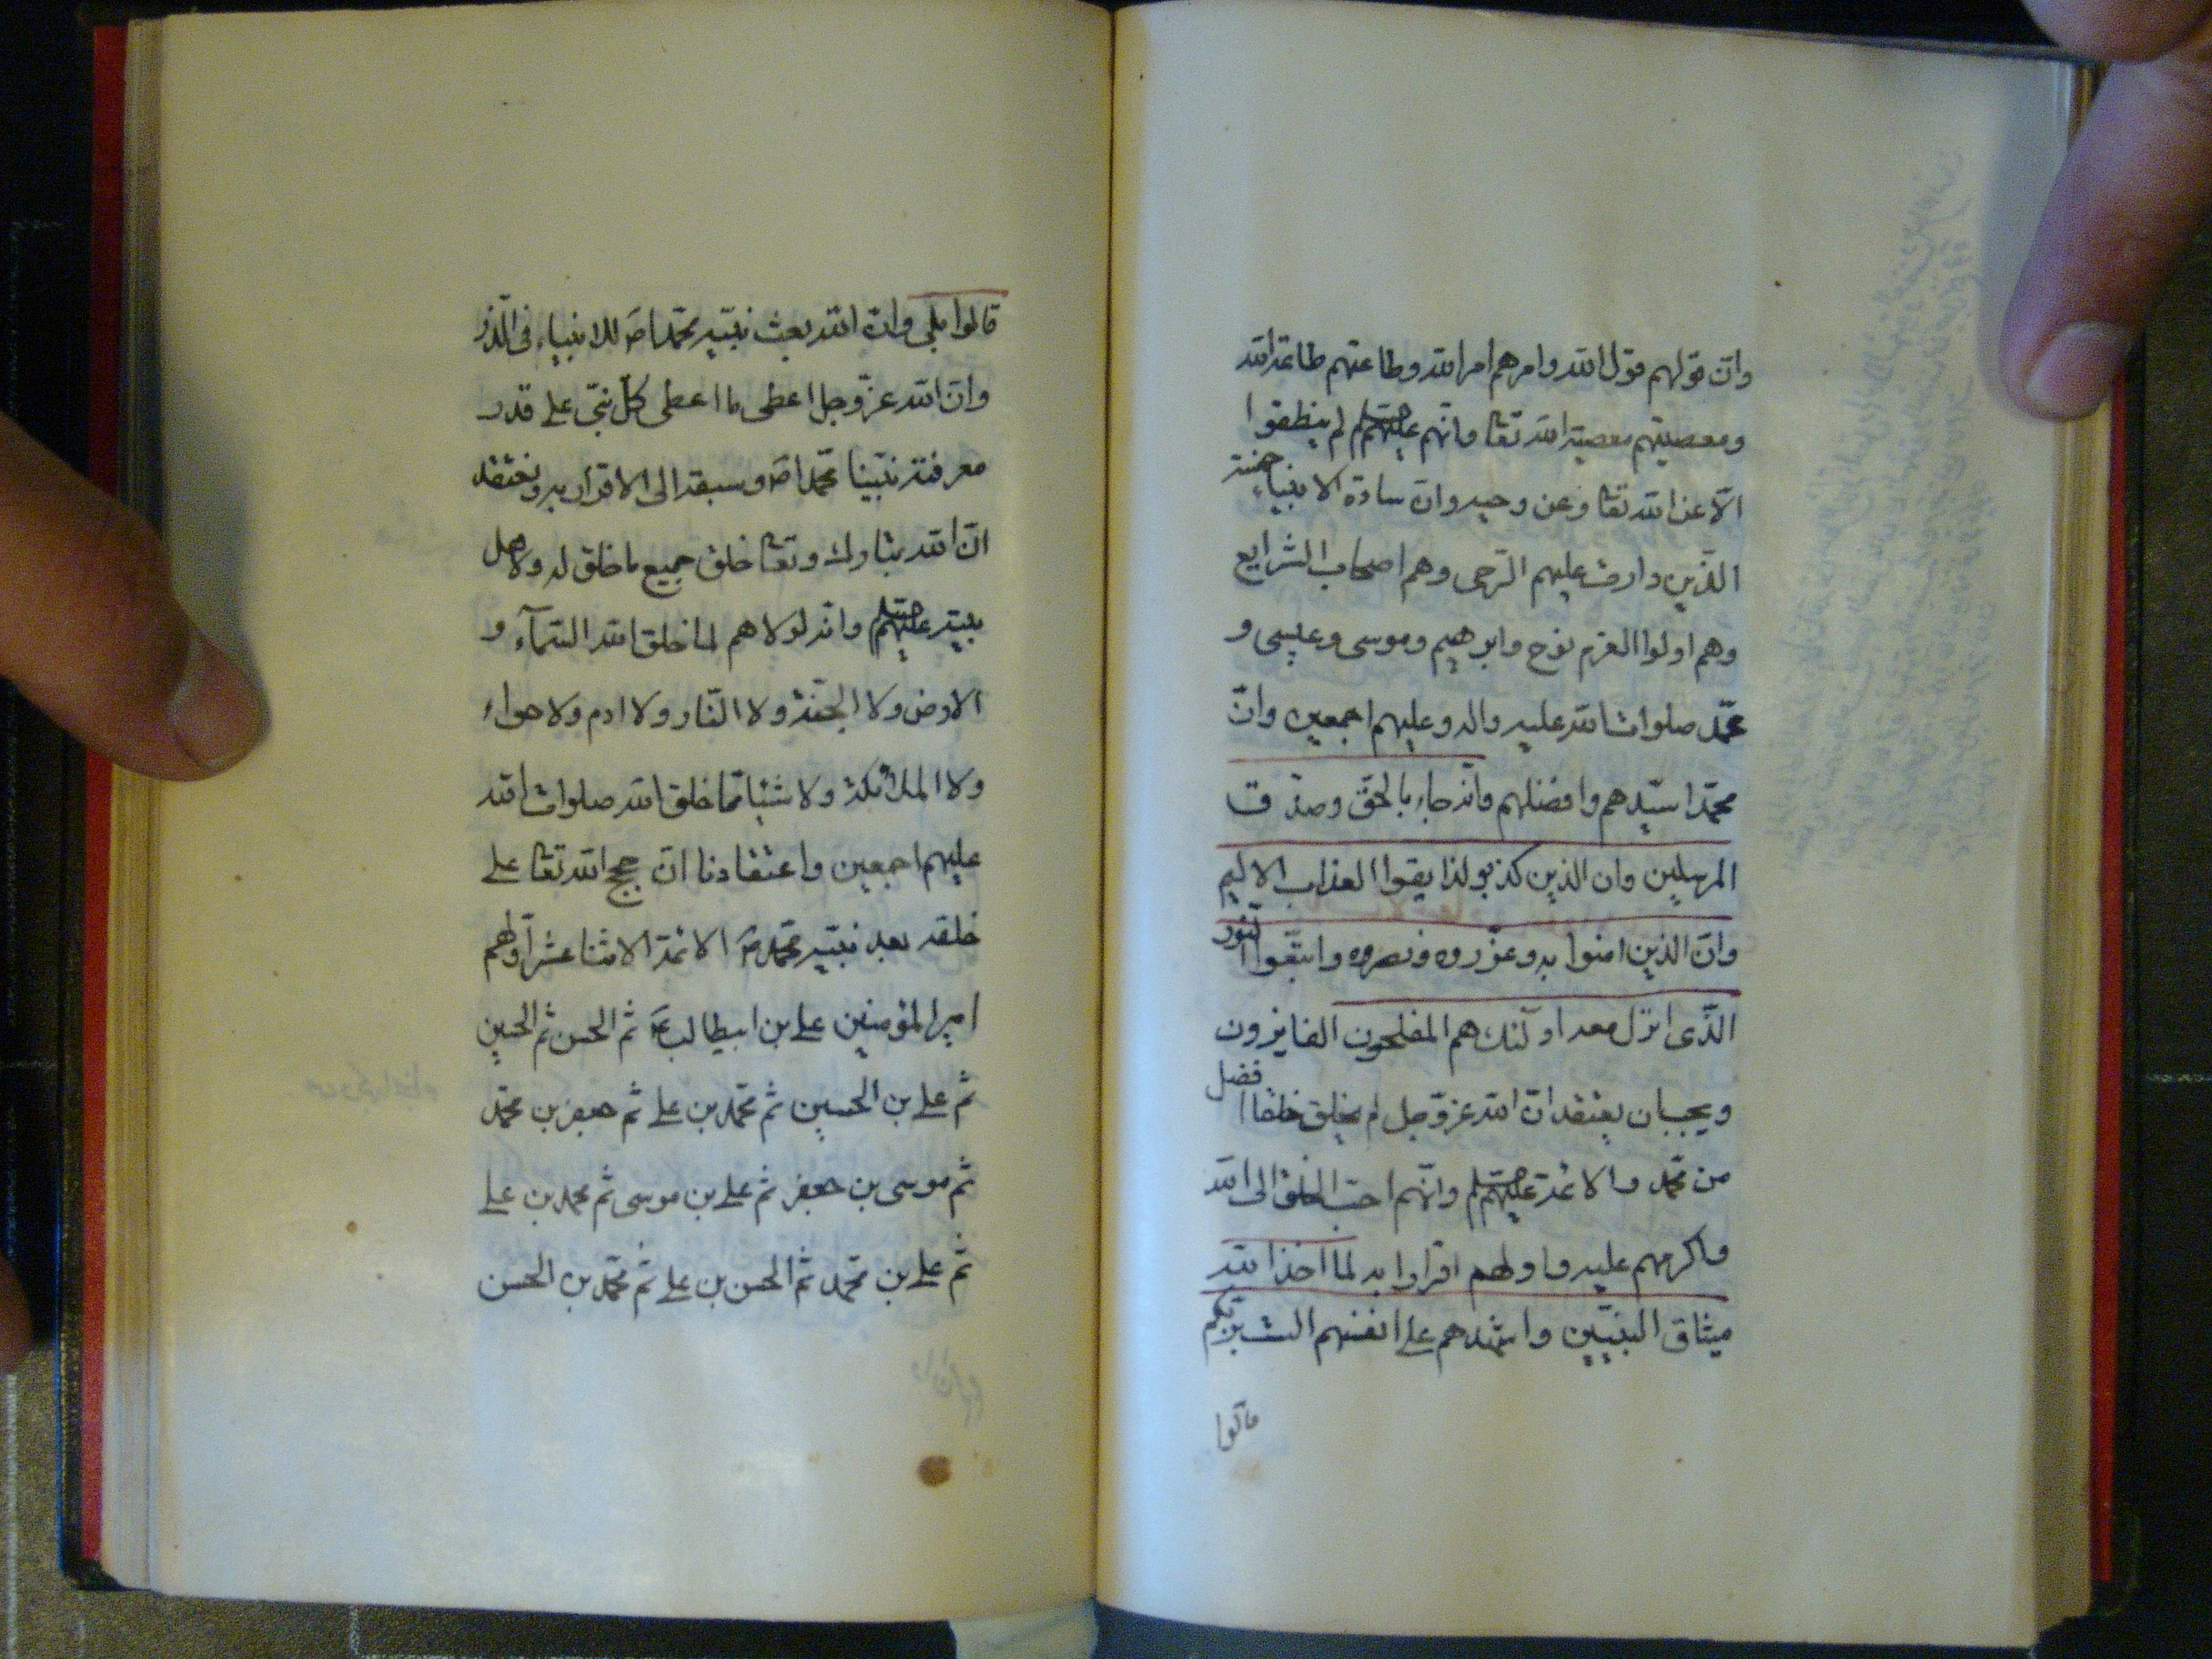 وان قولهم قول الله وامرهم امر الله وطاعتهم طاعة الله
ومعصيتهم معصية الله تعا وانهم عليهم لم ينطقوا
الّا عن الله تعا وعن وحيه وان سادة الانبياء خمسة
الذين دارت عليهم الرحى وهم اصحاب الشرايع
وهم اولوا العزم نوح وابرهيم وموسى وعيسى و
محمّد صلوات الله عليه واله وعليهم اجمعين وانّ
محمّدا سيّدهم وافضلهم وانه جاء بالحق وصدّق
المرسلين وان الذين كذبو لذايقوا العذاب الاليم
وانّ الذين امنوا به وعزّروه ونصروه واتبّعوا النّور
الذّى انزل معه اولئك هم المفلحون الفايزون
ويجب ان يعتقد انّ الله عزّوجل لم يخلق خلقا افضل
من محمّد والائمة عليهم وانّهم احبّ الخلق الى الله
واكرمهم عليه واولهم اقرارا به لما اخذ الله
ميثاق النبيّين واشهدهم على انفسهم الست بربّكم
قالوا
قالوا بلى وانّ الله بعث نبيّه محمّدا صَ للانبياء فى الذّر
وانّ الله عزّوجل اعطى ما اعطى كلّ نبىّ على قدر
معرفته نبيّنا محمّدا صَ وسبقه الى الاقرار به ونعتقد
انّ الله تبارك وتعا خلق جميع ما خلق له ولاهل
بيته عليهم وانه لولاهم لما خلق الله السّمآء و
الارض ولا الجنّة ولا النّار ولا ادم ولا حواء
ولا الملائكة ولا شيئا ممّا خلق الله صلوات الله
عليهم اجمعين واعتقادنا انّ حجج الله تعا على
خلقه بعد نبيّه محمّد صَ الائمّة الاثنا عشر اوّلهم
امير المؤمنين على بن ابيطالب عَ ثم الحسن ثم الحسين
ثم على بن الحسين ثم محمّد بن على ثم جعفر بن محمّد
ثم موسى بن جعفر ثم على بن موسى ثم محمد بن على
ثم على بن محمّد ثم الحسن بن على ثم محمّد بن الحسن